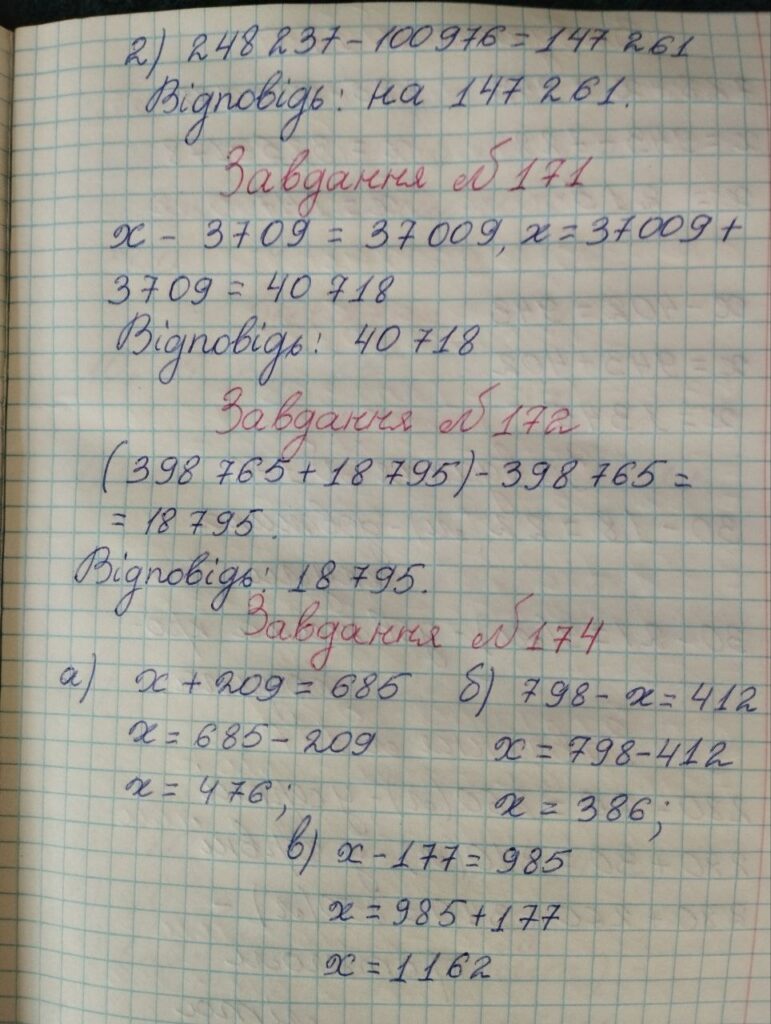 2) 248 237 - 100 976 = 147 261
Відповідь: на 147 261.
Завдання №171
x - 3709 = 37 009, x = 37009 +
3709 = 40 718
Відповідь: 40 718
Завдання №172
(398 765 + 18 795) - 398 765 =
= 18 795.
Відповідь: 18 795.
Завдання №174
а) x + 209 = 685 б) 798 - x = 412
x = 685 - 209 x = 798 - 412
x = 476; x = 386;
в) x - 177 = 985
x = 985 + 177
x = 1162